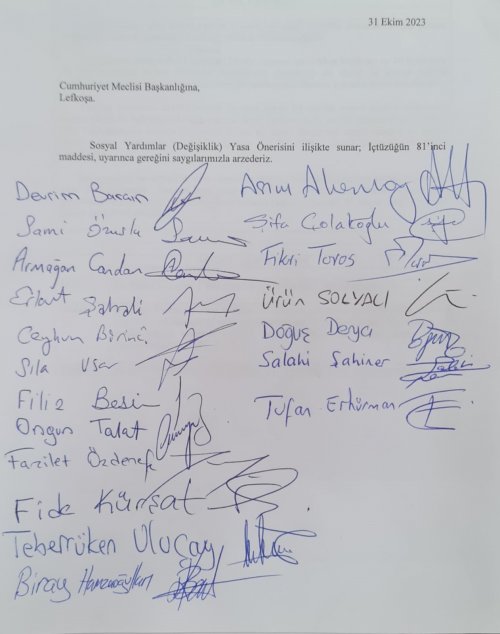 31 Ekim 2023
Cumhuriyet Meclisi Başkanlığına,
Lefkoşa.
Sosyal Yardımlar (Değişiklik) Yasa Önerisini ilişikte sunar; İçtüzüğün 81'inci
maddesi, uyarınca gereğini saygılarımızla arzederiz.
Devrim Barçın
Sami Özuslu
Armağan Candan
Erkut Şahali
Ceyhun Birinci
Sıla Usar
Filiz Besim
Ongun Talat
Fazilet Özdenefe
Fide Kürşat
Teberrüken Uluçay
Biray Hamzaoğulları
Asım Akansoy
Şifa Çolakoğlu
Fikri Toros
Ürün SOLYALI
Doğuş Derya
Salahi Şahiner
Tufan Erhürman